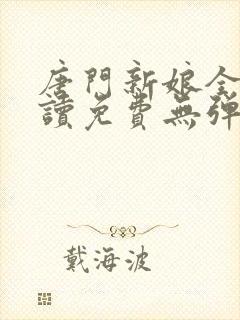 唐門新娘全
讀免費無彈
戴海波